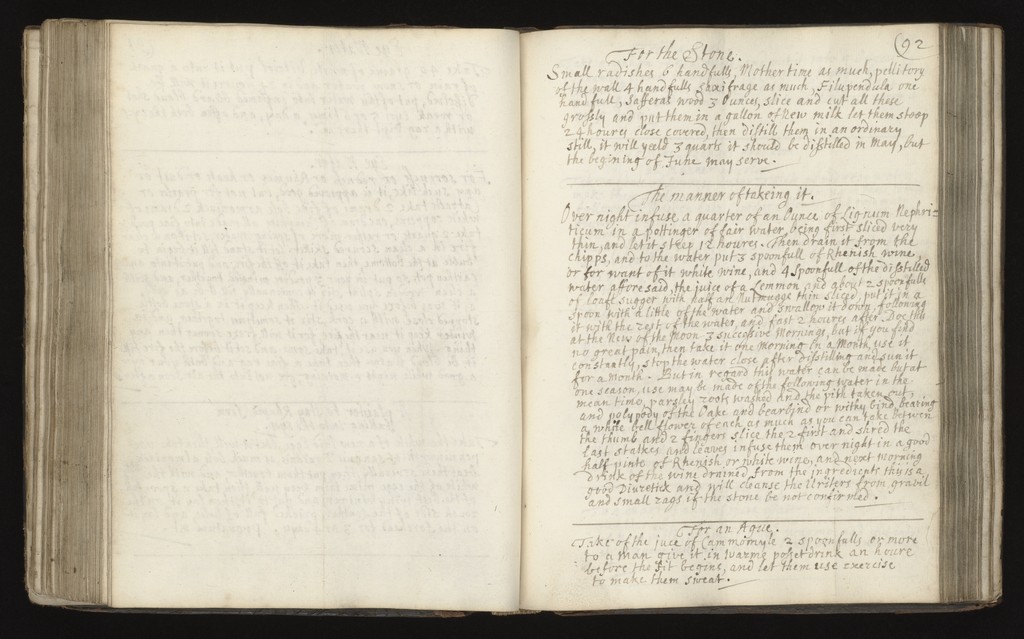 (92
For the Stone.
Small radishes 6 handfulls, Mother time as much, pellitory
of the wall 4 handfulls Saxifrage as much, Filupendula one
handfull, Safferas wood 3 Ounces, slice and cut all these
grosly and put them in a gallon of New milk let them steep
24 houres close covered, then distill them in an ordinary
still, it will yeeld 3 quarts it should be distilled in May, but
the begining of June may serve.
The manner of takeing it.
Over night infuse a quarter of an Ounce of Lignum Nephri=
ticum in a pottinger of fair water, being first sliced very
thin, and let it steep 12 houres. Then drain it from the
chipps, and to the water put 3 spoonfull of Rhenish wine,
or for want of it white wine, and 4 spoonfull of the distilled
water afforesaid, the juice of a Lemmon and about 2 spoonfulls
of Loafe sugger with half a Nutmugge thin sliced, put it in a
spoon with a little of the water and swallow it down, following
it with the rest of the water, and fast 2 houres after. Doe this
at the New of the Moon 3 successive Mornings, but if you find
no great pain, then take it one Morning in a Month, use it
constnatly, stop the water close after distilling and sun it
for a month. But in regard this water can be made but at
one season, use may be made of the following water in the
mean time, parsley roots washed and the pith taken out
and polypody of the Oake and bearbind or withy bind, bearing
a white bell flower of each as much as you can take betwen
the thumb and 2 fingers slice the 2 first and shred the
last stalkes and leaves infuse them over night in a good
half pinte of Rhenish or white wine, and next Morning
drink of the wine drained from the ingredients this is a
good Diuretick and will cleanse the Uriters from gravil
and small rags if the stone be not confirmed.
For an Ague.
Take of the juce of Cammomyle 2 spoonfulls or more
to a man give it in warme posset drink an houre
before the fit begins, and let them use exercise
to make them sweat.